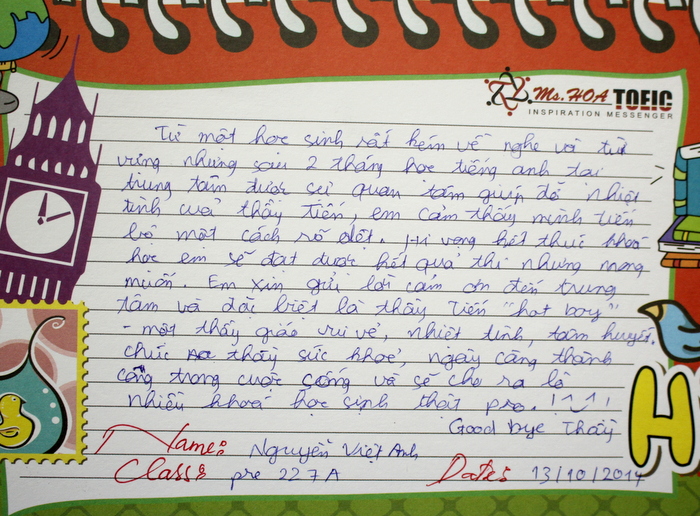 Ms. HOA TOEIC
INSPIRATION MESSENGER
Từ một học sinh rất kém về nghe và từ
vựng nhưng sau 2 tháng học tiếng anh tại
trung tâm được sự quan tâm giúp đỡ nhiệt
tình cuả thầy Tiến, em cảm thấy mình tiến
bộ một cách rõ dệt. Hi vọng kết thúc khoá
học em sẽ đạt được kết quả thi như mong
muốn. Em xin gửi lời cảm ơn đến trung
tâm và đặc biệt là thầy Tiến "hot boy"
- một thầy giáo vui vẻ, nhiệt tình, tâm huyết.
chúc thầy sức khoẻ, ngày càng thành
công trong cuộc sống và sẽ cho ra lò
nhiều khoá học sinh thật pro.!
Good bye Thầy
Name: Nguyễn Việt Anh
Class: pre 227A Date: 13/10/2014
H